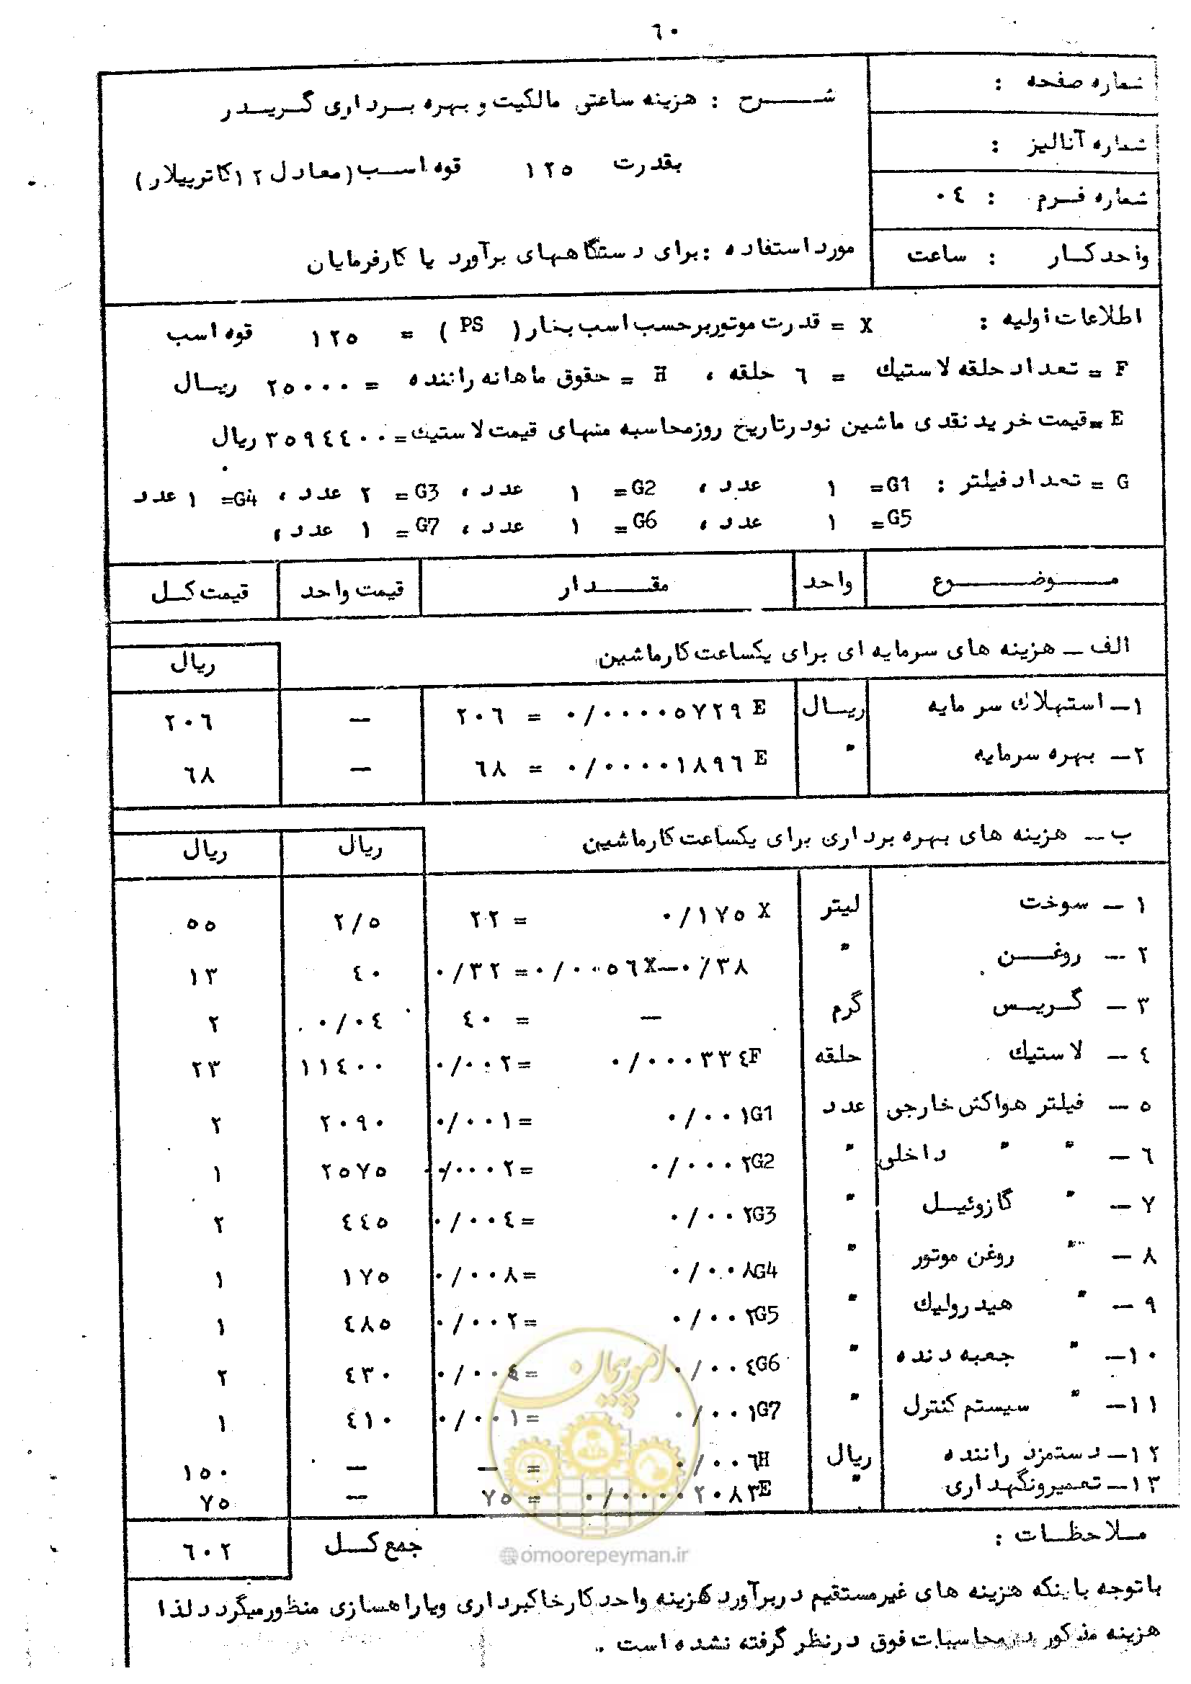 ٦٠
شماره صفحه :
شماره آنالیز :
شماره فرم : ٠٤
واحد کار : ساعت
شرح : هزینه ساعتی مالکیت و بهره برداری گریدر
بقدرت ١٢٥ قوه اسب (معادل ١٢ کاترپیلار)
مورد استفاده : برای دستگاههای برآورد یا کارفرمایان
اطلاعات اولیه : X = قدرت موتور برحسب اسب بخار ( PS ) = ١٢٥ قوه اسب
F = تعداد حلقه لاستیک = ٦ حلقه ، H = حقوق ماهانه راننده = ٢٥٠٠٠ ریال
E = قیمت خرید نقدی ماشین نو در تاریخ روز محاسبه منهای قیمت لاستیک = ٣٥٩٤٤٠٠ ریال
G = تعداد فیلتر : G1= ١ عدد ، G2= ١ عدد ، G3= ٢ عدد ، G4= ١ عدد
G5= ١ عدد ، G6= ١ عدد ، G7= ١ عدد ،
موضوع واحد مقدار قیمت واحد قیمت کل
الف ـ هزینه های سرمایه ای برای یکساعت کار ماشین ریال
١ـ استهلاک سرمایه ریال ٠/٠٠٠٠٥٧٢٩ E = ٢٠٦ — ٢٠٦
٢ـ بهره سرمایه " ٠/٠٠٠٠١٨٩٦ E = ٦٨ — ٦٨
ب ـ هزینه های بهره برداری برای یکساعت کار ماشین ریال ریال
١ ـ سوخت لیتر ٠/١٧٥ X = ٢٢ ٢/٥ ٥٥
٢ ـ روغن " ٠/٠٠٥٦X—٠/٣٨ = ٠/٣٢ ٤٠ ١٣
٣ ـ گریس گرم — = ٤٠ ٠/٠٤ ٢
٤ ـ لاستیک حلقه ٠/٠٠٠٣٣٤F = ٠/٠٠٢ ١١٤٠٠ ٢٣
٥ ـ فیلتر هواکش خارجی عدد ٠/٠٠١G1 = ٠/٠٠١ ٢٠٩٠ ٢
٦ ـ " " داخلی " ٠/٠٠٠٢G2 = ٠/٠٠٠٢ ٢٥٧٥ ١
٧ ـ " گازوئیل " ٠/٠٠٢G3 = ٠/٠٠٤ ٤٤٥ ٢
٨ ـ " روغن موتور " ٠/٠٠٨G4 = ٠/٠٠٨ ١٧٥ ١
٩ ـ " هیدرولیک " ٠/٠٠٢G5 = ٠/٠٠٢ ٤٨٥ ١
١٠ـ " جعبه دنده " ٠/٠٠٤G6 = ٠/٠٠٤ ٤٣٠ ٢
١١ـ " سیستم کنترل " ٠/٠٠١G7 = ٠/٠٠١ ٤١٠ ١
١٢ـ دستمزد راننده ریال ٠/٠٠٦H = — — ١٥٠
١٣ـ تعمیر و نگهداری " ٠/٠٠٠٠٢٠٨٣E = ٧٥ — ٧٥
ملاحظات : جمع کل ٦٠٢
امور پیمان
@omoorepeyman.ir
با توجه باینکه هزینه های غیرمستقیم در برآورد هزینه واحد کار خاکبرداری و یا راهسازی منظور میگردد لذا
هزینه مذکور در محاسبات فوق در نظر گرفته نشده است .